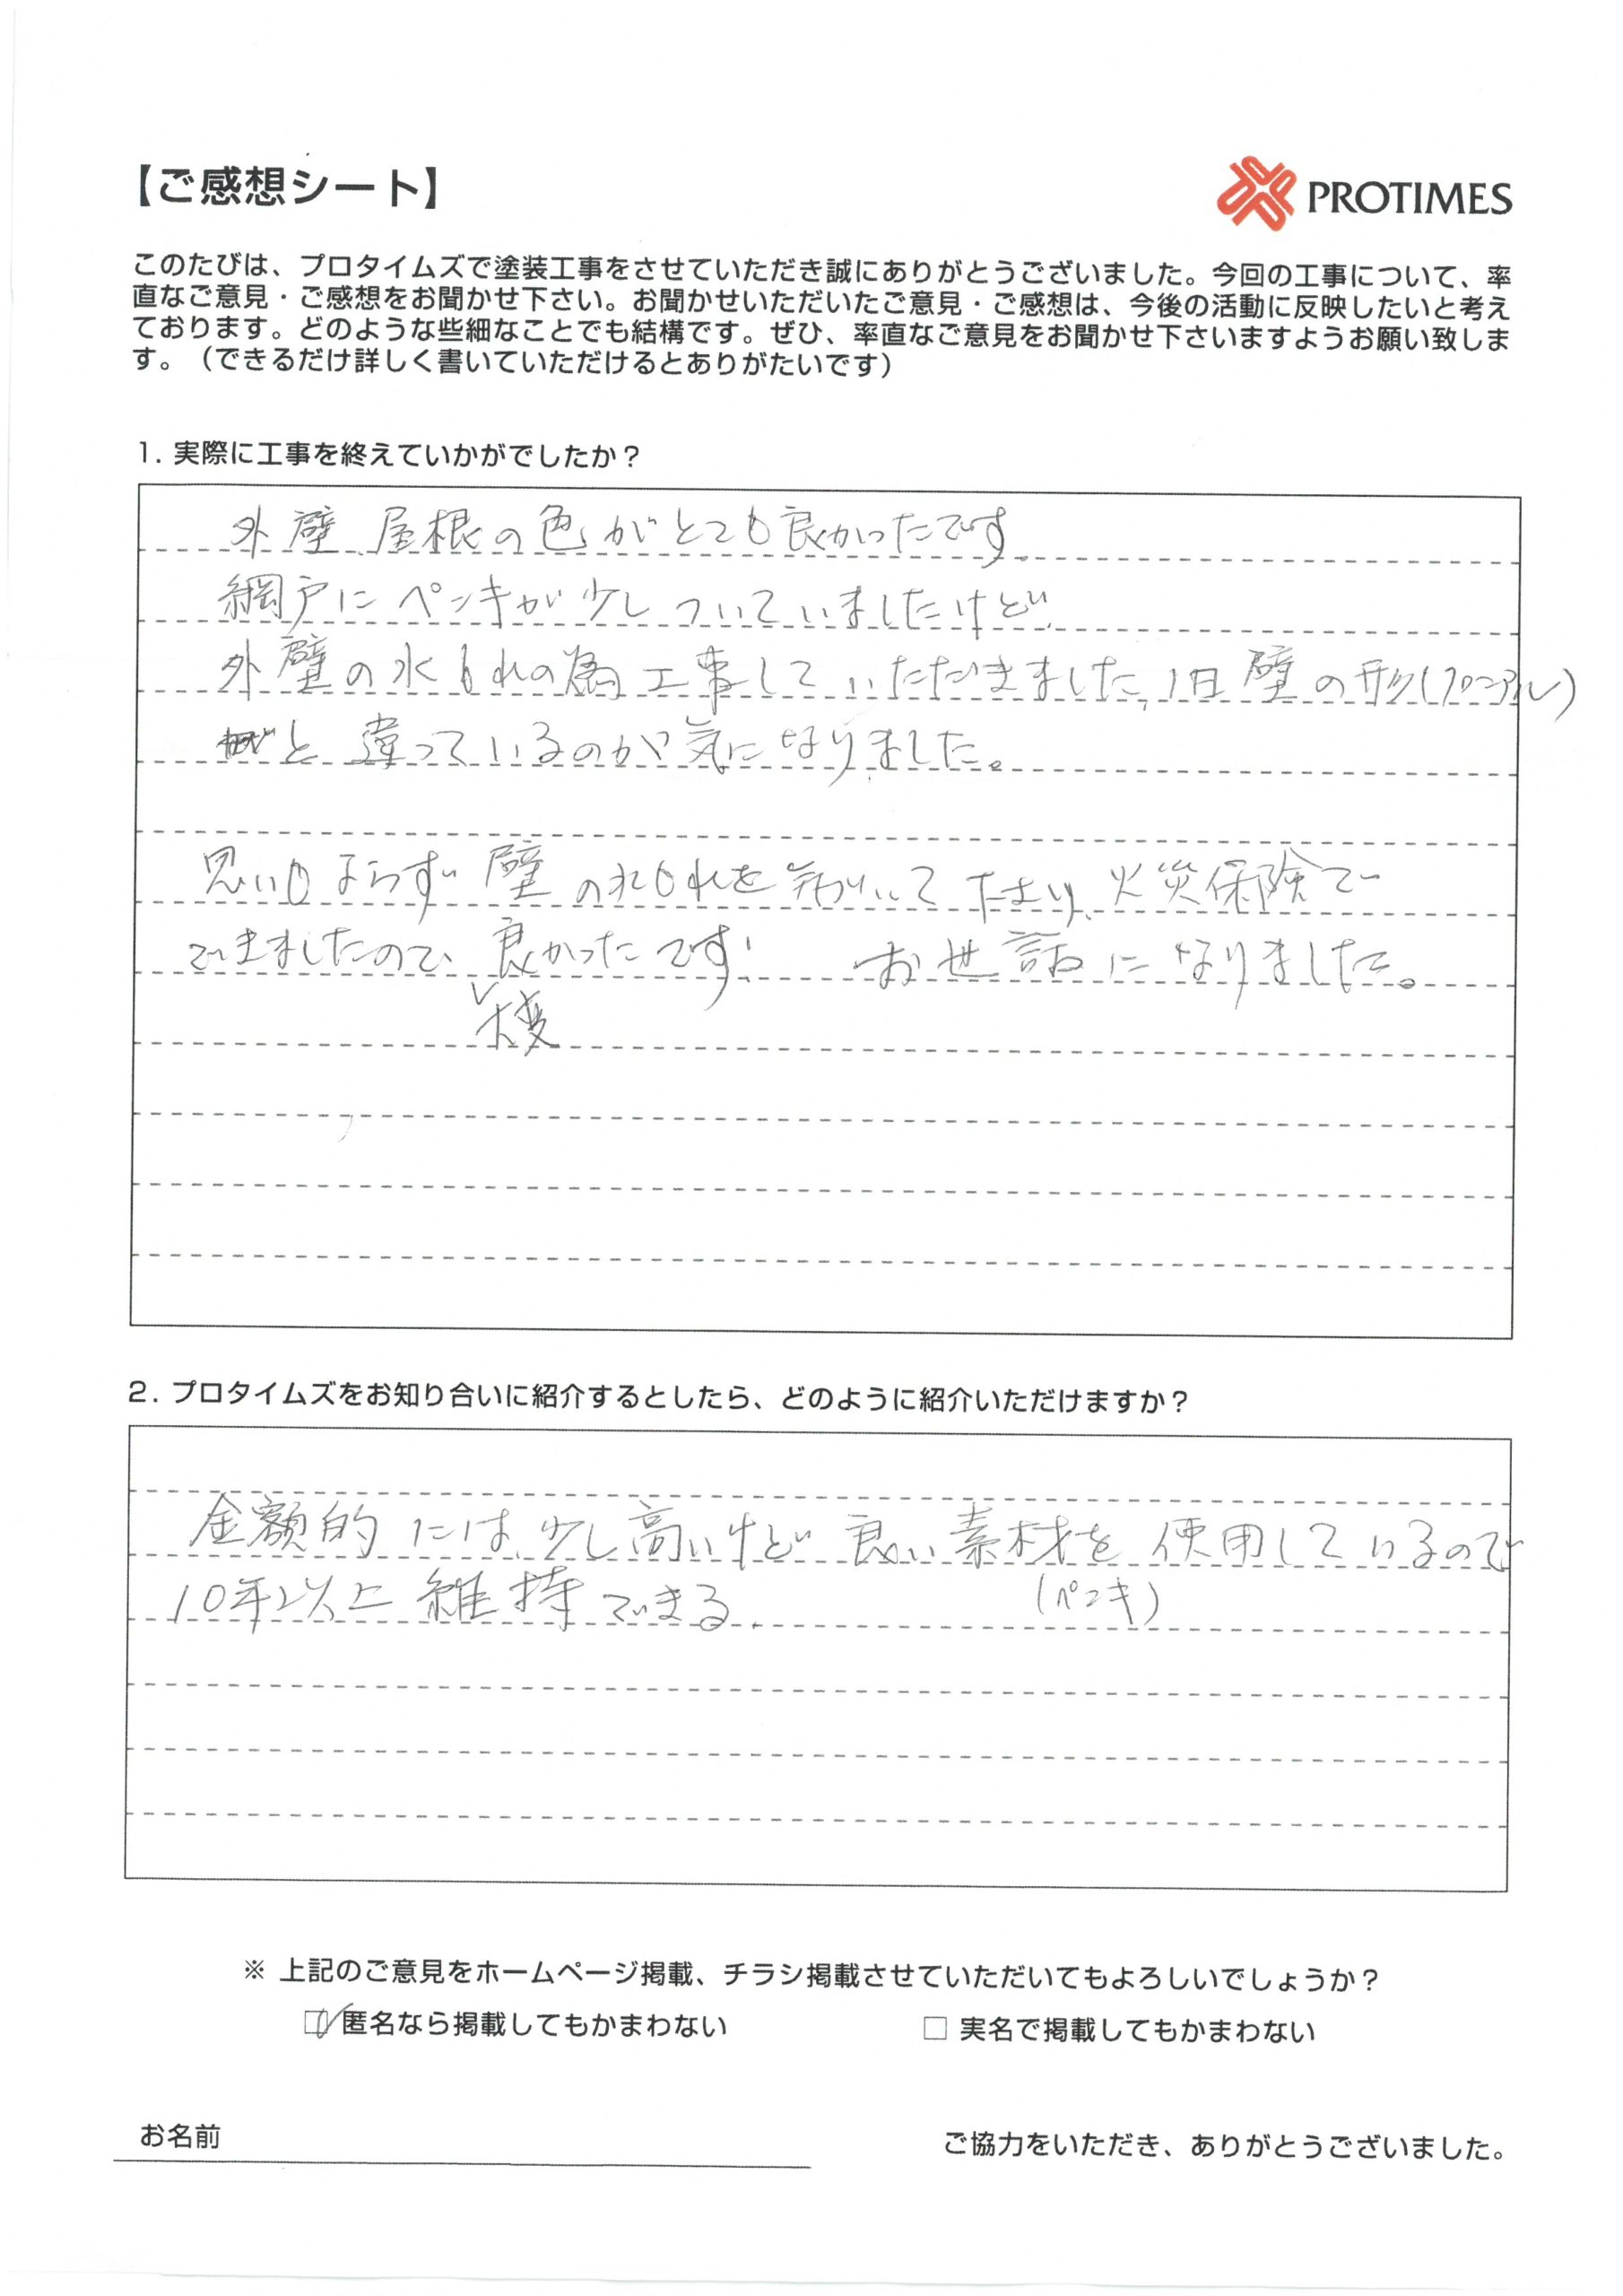 【ご感想シート】
PROTIMES
このたびは、プロタイムズで塗装工事をさせていただき誠にありがとうございました。今回の工事について、率
直なご意見・ご感想をお聞かせ下さい。お聞かせいただいたご意見・ご感想は、今後の活動に反映したいと考え
ております。どのような些細なことでも結構です。ぜひ、率直なご意見をお聞かせ下さいますようお願い致しま
す。（できるだけ詳しく書いていただけるとありがたいです）
1. 実際に工事を終えていかがでしたか？
外壁、屋根の色がとても良かったです。
網戸にペンキが少しついていましたけど、
外壁の水もれの為工事していただきました、旧壁の形
と違っているのが気になりました。
思いもよらず壁の水もれを 火災保険で
できましたので、良かったです! お世話になりました。
大変
2. プロタイムズをお知り合いに紹介するとしたら、どのように紹介いただけますか？
金額的には、少し高いけど良い素材を使用しているので
10年以上維持できる。
(ペンキ)
※ 上記のご意見をホームページ掲載、チラシ掲載させていただいてもよろしいでしょうか？
匿名なら掲載してもかまわない
□ 実名で掲載してもかまわない
お名前
ご協力をいただき、ありがとうございました。